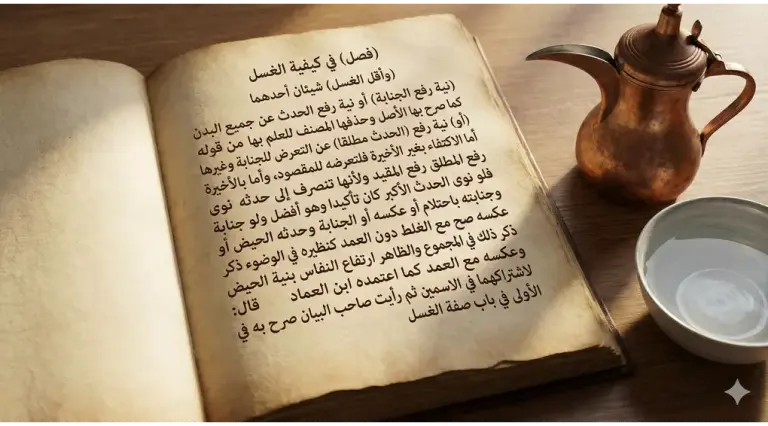 (فصل) في كيفية الغسل
(وأقل الغسل) شيئان أحدهما
(نية رفع الجنابة) أو نية رفع الحدث عن جميع البدن
كما صرح بها الأصل وحذفها المصنف للعلم بها من قوله
(أو) نية رفع (الحدث مطلقا) عن التعرض للجنابة وغيرها
أما الاكتفاء بغير الأخيرة فلتعرضه للمقصود، وأما بالأخيرة
رفع المطلق رفع المقيد ولأنها تنصرف إلى حدثه نوى
فلو نوى الحدث الأكبر كان تأكيدا وهو أفضل ولو جنابة
وجنابته باحتلام أو عكسه أو الجنابة وحدثه الحيض أو
عكسه صح مع الغلط دون العمد كنظيره في الوضوء ذكر
ذكر ذلك في المجموع والظاهر ارتفاع النفاس بنية الحيض
وعكسه مع العمد كما اعتمده ابن العماد قال:
لاشتراكهما في الاسمين ثم رأيت صاحب البيان صرح به في
الأولى في باب صفة الغسل